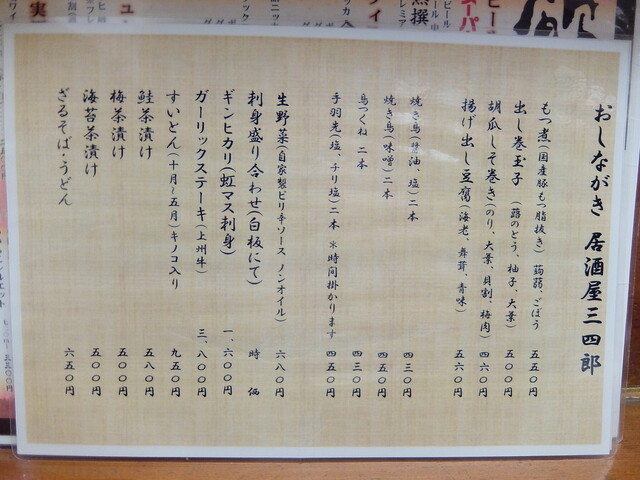 おしながき 居酒屋三四郎
もつ煮(国産豚もつ脂抜き) 蒟蒻、ごぼう 五五〇円
出し巻玉子 (蕗のとう、柚子、大葉) 五〇〇円
胡瓜しそ巻き(のり、大葉、貝割、梅肉) 四六〇円
揚げ出し豆腐(海老、舞茸、青味) 五六〇円
焼き鳥(醤油、塩)二本 四三〇円
焼き鳥(味噌)二本 四五〇円
鳥つくね 二本 四三〇円
手羽先(塩、チリ塩)二本 ※時間掛かります 四五〇円
生野菜(自家製ピリ辛ソース ノンオイル) 六八〇円
刺身盛り合わせ(白板にて) 時 価
ギンヒカリ(虹マス刺身) 一、六〇〇円
ガーリックステーキ(上州牛) 三、八〇〇円
すいとん(十月~五月)キノコ入り 九五〇円
鮭茶漬け 五八〇円
梅茶漬け 五〇〇円
海苔茶漬け 五〇〇円
ざるそば・うどん 六五〇円